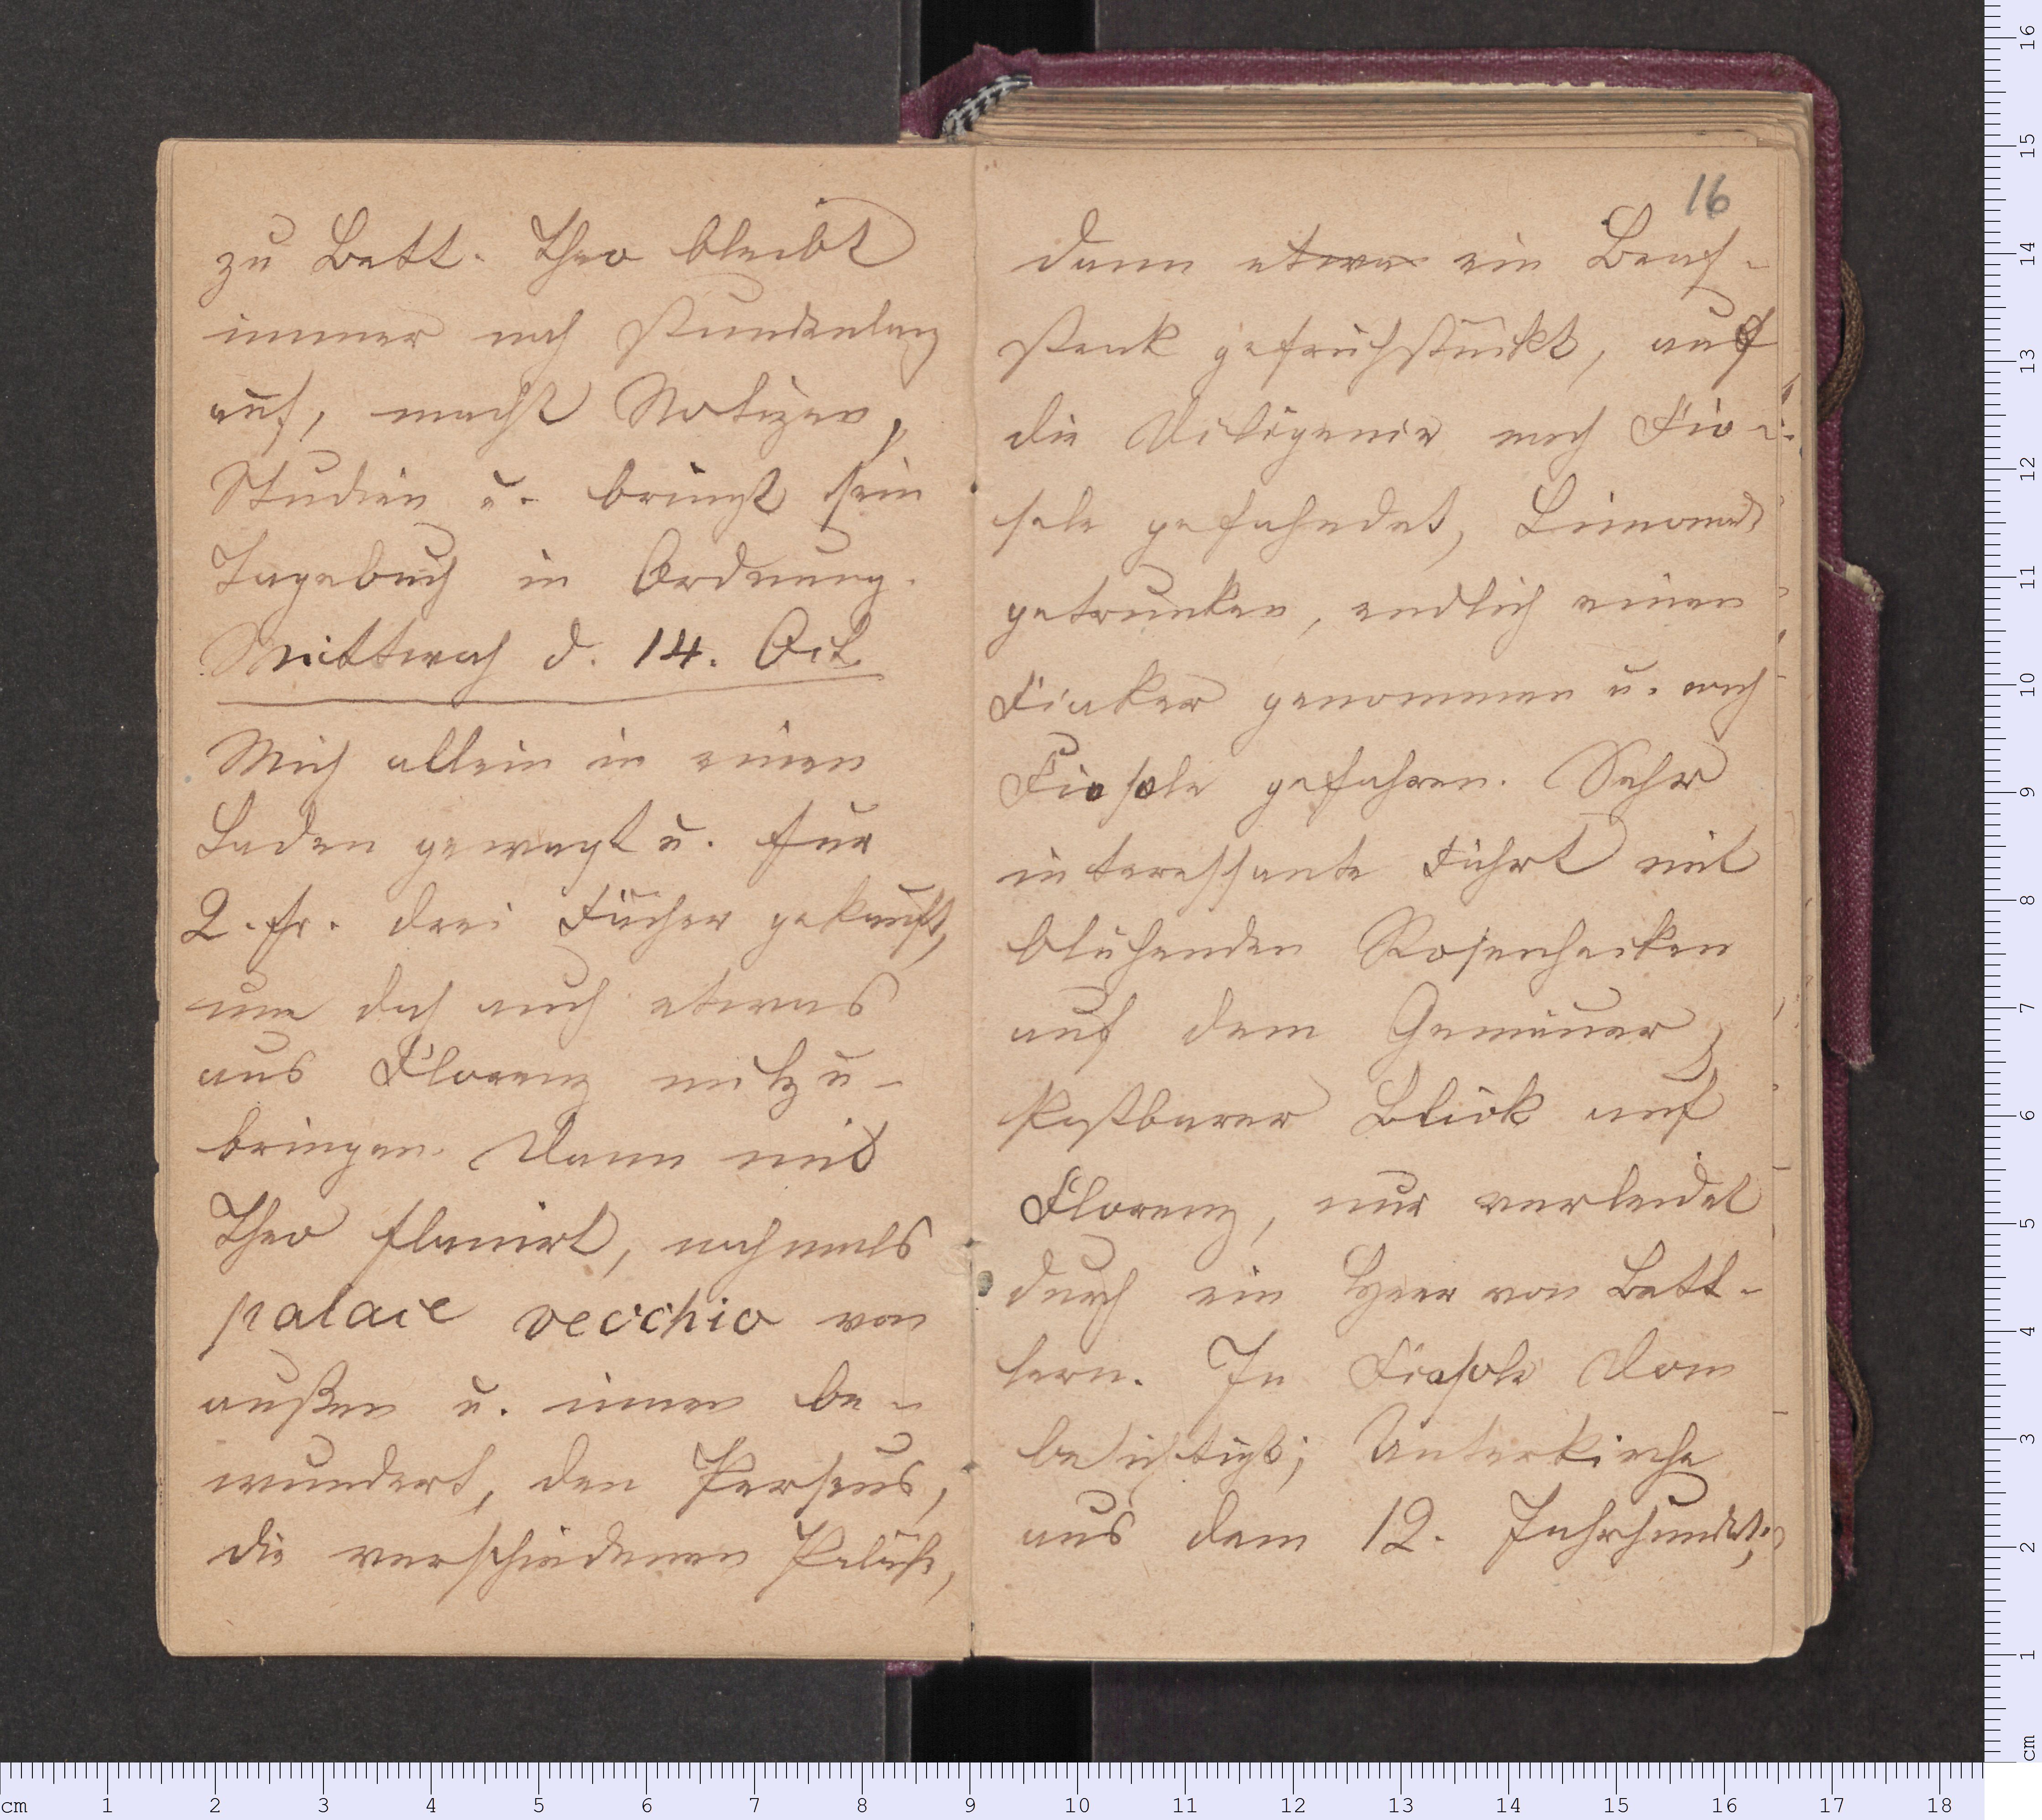 zu Bett. Theo bleibt
immer noch stundenlang
auf, macht Notizen,
Studien u. bringt sein
Tagebuch in Ordnung.
Mittwoch d. 14. Oct.
Mich allein in einen
Laden gewagt u. für
2. fr. drei Fächer gekauft,
um doch auch etwas
aus Florenz mitzu-
bringen. Dann mit
Theo flanirt, nochmals
palace vecchio von
außen u. innen be-
wundert, den Perseus,
die verschiedenen Paläste,
16
dann etwas ein Beaf-
steak gefrühstückt, auf
die Diligence nach Fio-
sole gefahndet, Limonad
getrunken, endlich einen
Fiaker genommen u. nach
Fiosole gefahren. Sehr
interessante Fahrt mit
blühenden Rosenhecken
auf dem Gemäuer,
kostbarer Blick auf
Florenz, nur verleidet
durch ein Heer von Bett-
lern. In Fiesole Dom
besichtigt; Unterkirche
aus dem 12. Jahrhundert;